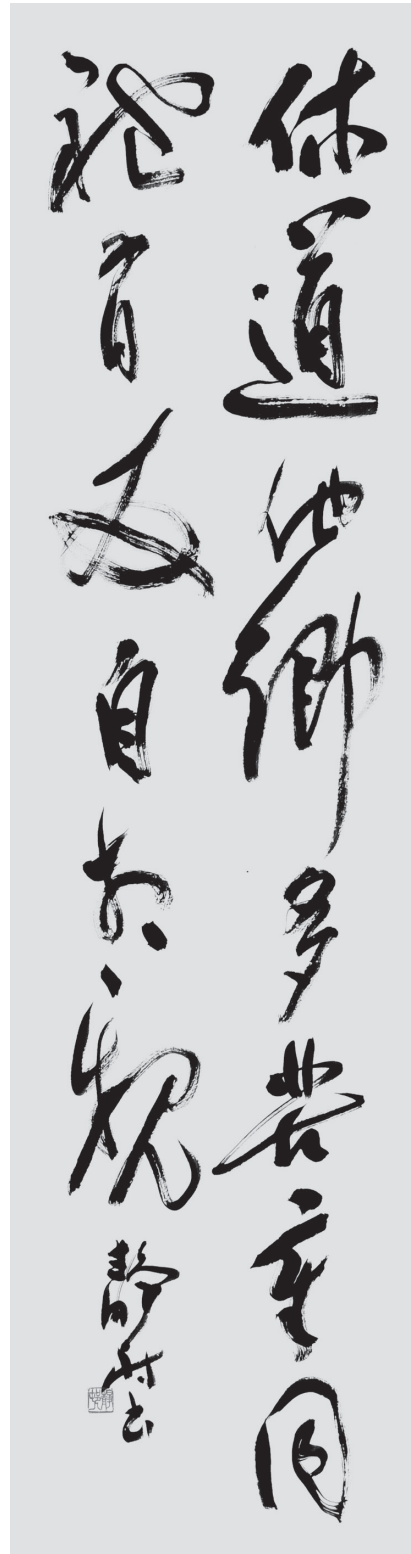 休道他郷多苦辛同
袍有友自相親
静 書